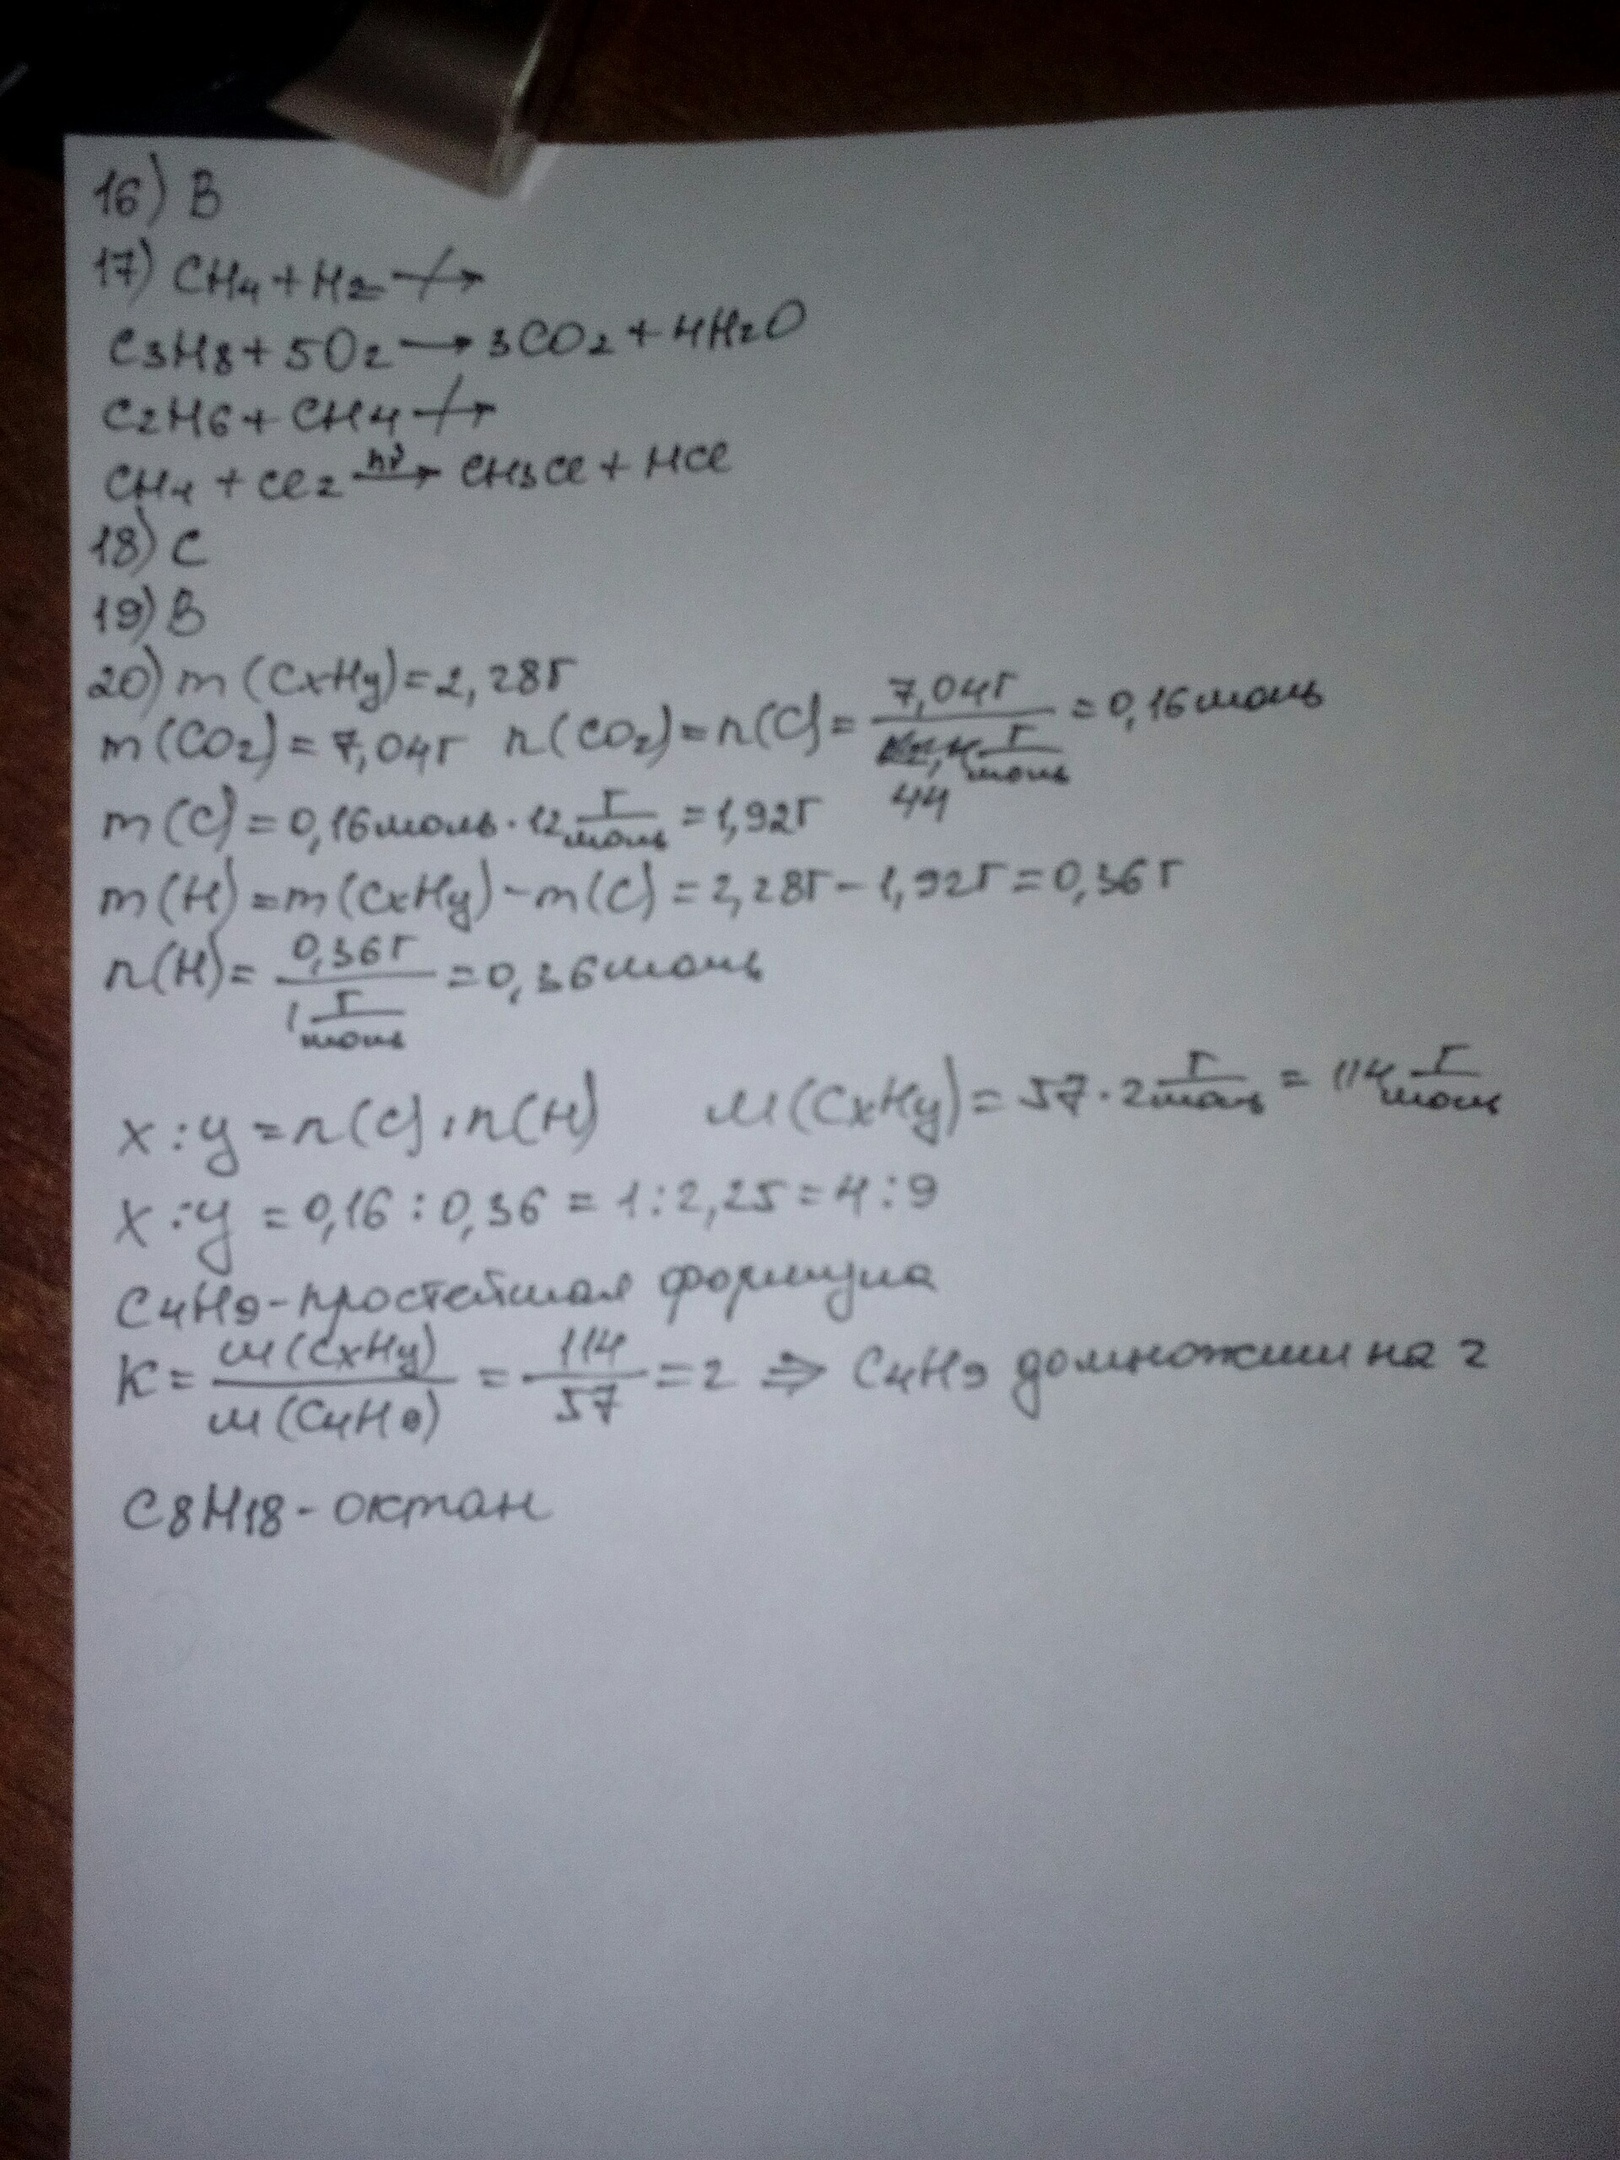 16) В
17) CH4 + H2 ↛
C3H8 + 5O2 → 3CO2 + 4H2O
C2H6 + CH4 ↛
CH4 + Cl2 hν→ CH3Cl + HCl
18) C
19) В
20) m(CxHy) = 2,28г
m(CO2) = 7,04г n(CO2) = n(C) = 7,04г / 44 г/моль = 0,16моль
m(C) = 0,16моль · 12 г/моль = 1,92г
m(H) = m(CxHy) - m(C) = 2,28г - 1,92г = 0,36г
n(H) = 0,36г / 1 г/моль = 0,36моль
x : y = n(C) : n(H) M(CxHy) = 57 · 2 г/моль = 114 г/моль
x : y = 0,16 : 0,36 = 1 : 2,25 = 4 : 9
C4H9 - простейшая формула
K = M(CxHy) / M(C4H9) = 114 / 57 = 2 ⇒ C4H9 домножим на 2
C8H18 - октан